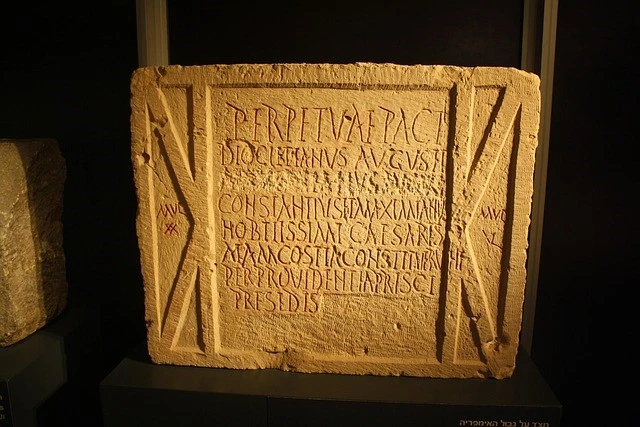 PERPETVAE PACI
DIOCLETIANVS AVGVS ET
CONSTANTIVS ET MAXIMIANVS
NOBILISSIMI CAESARES
ALAM COSTIA CONSTITVERVNT
PER PROVIDENTIA PRISCI
PRESIDIS
MVL
XX
MVL
XL
מצד על גבול האימפריה